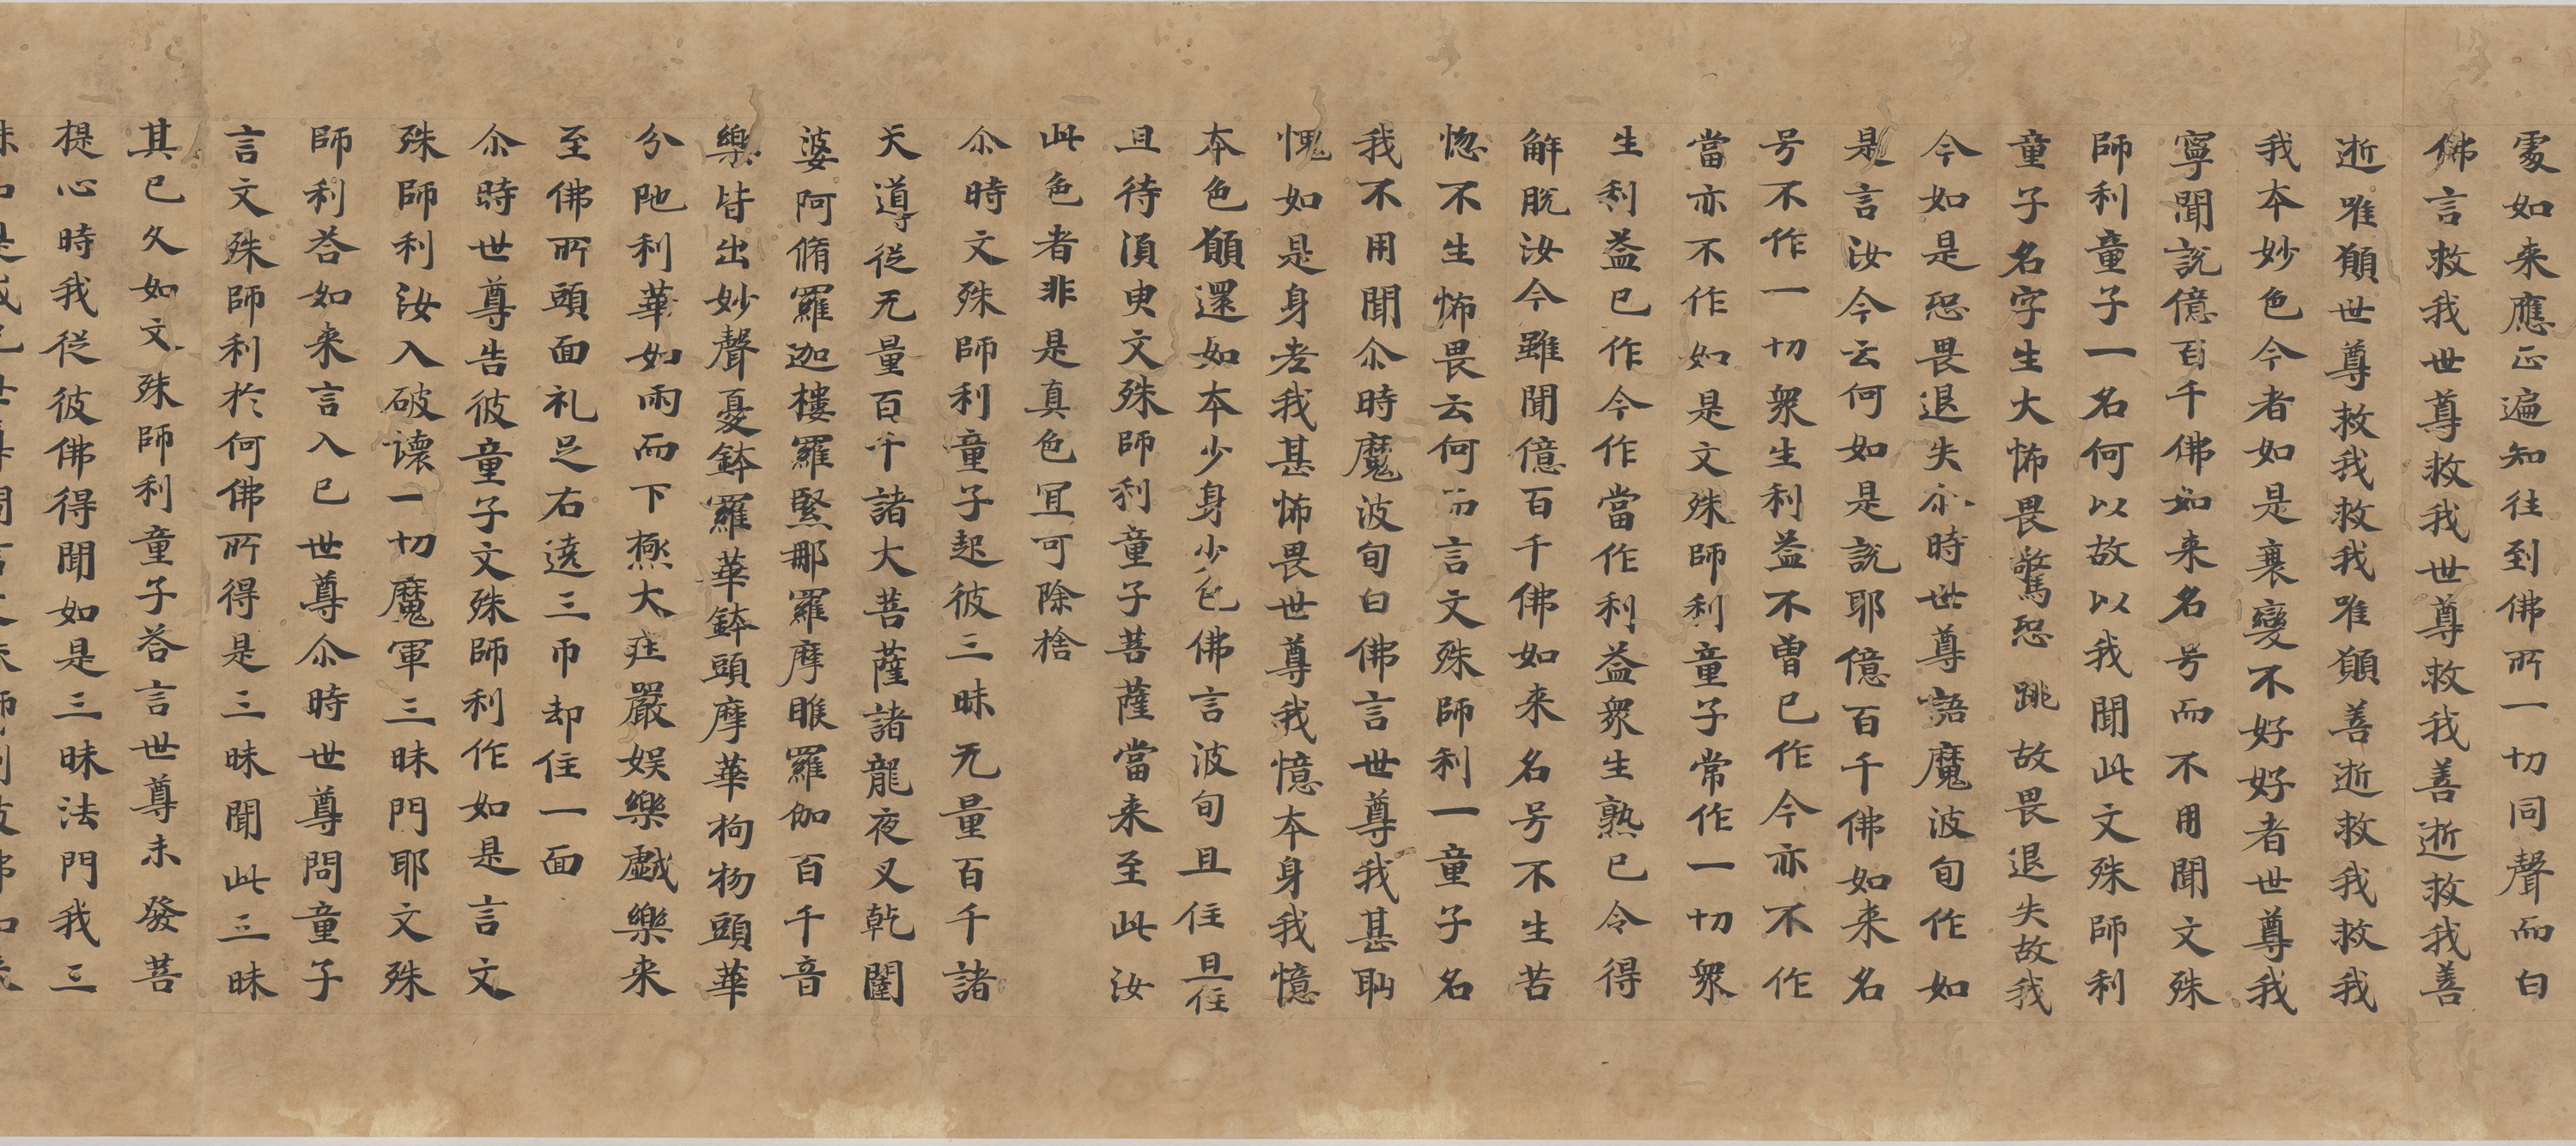 處如来應正遍知往到佛所一切同聲而白
佛言救我世尊救我世尊救我善逝救我善
逝唯願世尊救我救我唯願善逝救我救我
我本妙色今者如是衰變不好好者世尊我
寧聞說億百千佛如来名号而不用聞文殊
師利童子一名何以故以我聞此文殊師利
童子名字生大怖畏驚恐跳故畏退失故我
今如是恐畏退失尒時世尊語魔波旬作如
是言汝今云何如是說耶億百千佛如来名
号不作一切衆生利益不曽已作今亦不作
當亦不作如是文殊師利童子常作一切衆
生利益已作今作當作利益衆生熟已令得
解脫汝今雖聞億百千佛如来名号不生苦
惚不生怖畏云何而言文殊師利一童子名
我不用聞尒時魔波旬白佛言世尊我甚恥
愧如是身老我甚怖畏世尊我憶本身我憶
本色願還如本少身少色佛言波旬且住且住
且待須臾文殊師利童子菩薩當来至此汝
此色者非是真色冝可除捨
尒時文殊師利童子起彼三昧无量百千諸
天導從无量百千諸大菩薩諸龍夜叉乾闥
婆阿脩羅迦樓羅緊那羅摩睺羅伽百千音
樂皆出妙聲憂鉢羅華鉢頭摩華拘物頭華
分陁利華如雨而下極大莊嚴娱樂戱樂来
至佛所頭面礼足右遶三帀却住一面
尒時世尊告彼童子文殊師利作如是言文
殊師利汝入破壊一切魔軍三昧門耶文殊
師利荅如来言入已世尊尒時世尊問童子
言文殊師利於何佛所得是三昧聞此三昧
其已久如文殊師利童子荅言世尊未發菩
提心時我從彼佛得聞如是三昧法門我三